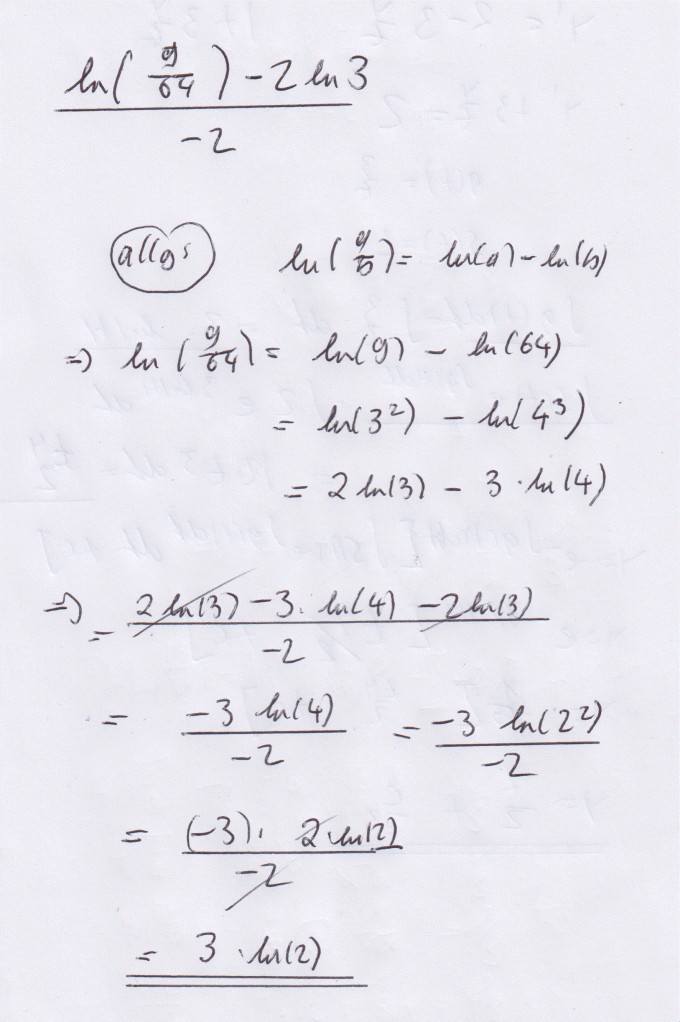 ln(9/64) - 2 ln 3
-2
allg: ln(a/b) = ln(a) - ln(b)
=> ln(9/64) = ln(9) - ln(64)
= ln(3²) - ln(4³)
= 2 ln(3) - 3 · ln(4)
=> = 2 ln(3) - 3 · ln(4) - 2 ln(3)
-2
= -3 ln(4) / -2 = -3 ln(2²) / -2
= (-3) · 2 · ln(2)
-2
= 3 · ln(2)